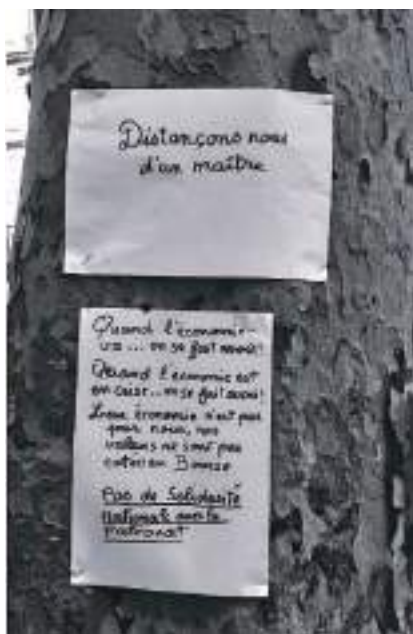 Distançons nous
d'un maître
Quand l'économie
va ... on se fait avoir!
Quand l'economie est
en crise... on se fait avoir!
économie n'est pas
pour nous, nos
valeurs ne sont pas
cotées en Bourse
Pas de Solidarité
Nationale avec le
patronat